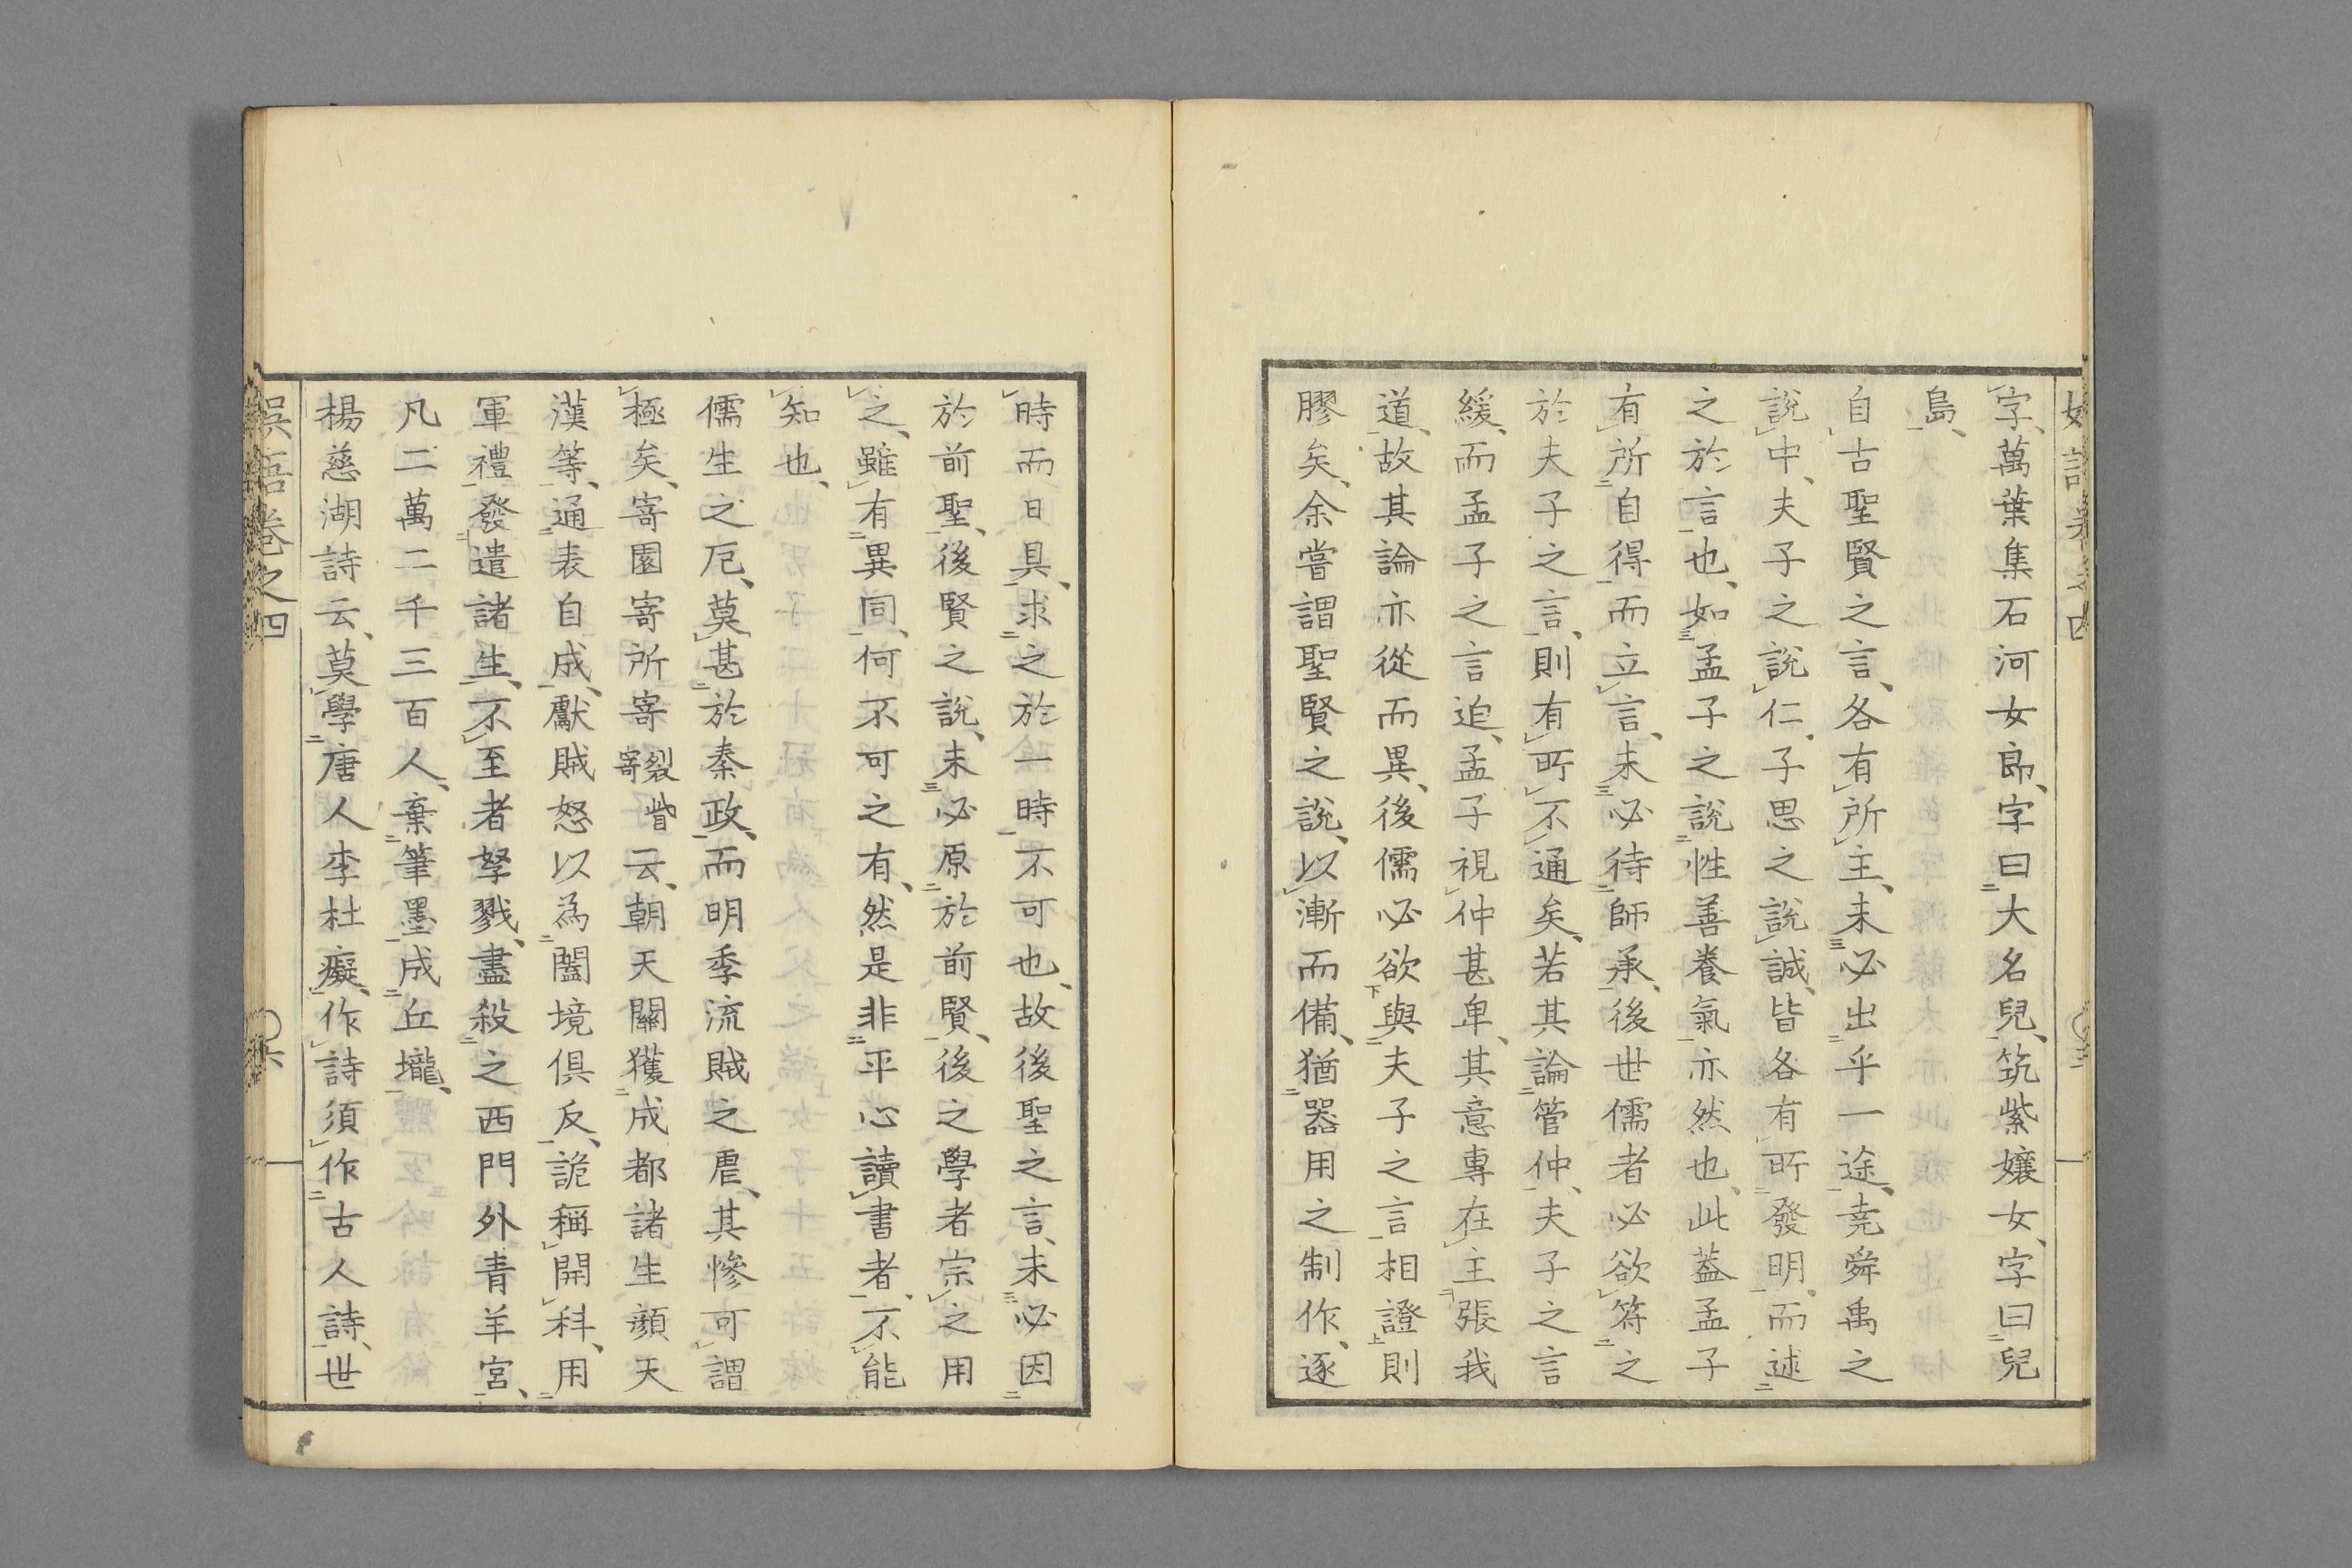 字、萬葉集石河女郎、字曰大名兒、筑紫孃女、字曰兒
島、
自古聖賢之言、各有所主、未必出乎一途、堯舜禹之
說中、夫子之說仁、子思之說誠、皆各有所發明、而述
之於言也、如孟子之說性善養氣亦然也、此蓋孟子
有所自得而立言、未必待師承、後世儒者必欲符之
於夫子之言、則有所不通矣、若其論管仲、夫子之言
緩、而孟子之言迫、孟子視仲甚卑、其意專在主張我
道、故其論亦從而異、後儒必欲與夫子之言相證則
膠矣、余嘗謂聖賢之說、以漸而備、猶器用之制作、逐
時而日具、求之於一時不可也、故後聖之言、未必因
於前聖、後賢之說、未必原於前賢、後之學者宗之用
之、雖有異同、何不可之有、然是非平心讀書者、不能
知也、
儒生之厄、莫甚於秦政、而明季流賊之虐、其慘可謂
極矣、寄園寄所寄 裂眥寄 云、朝天關獲成都諸生顏天
漢等、通表自成、獻賊怒以為闔境俱反、詭稱開科、用
軍禮發遣諸生、不至者孥戮、盡殺之西門外青羊宮、
凡二萬二千三百人、棄筆墨成丘壠、
楊慈湖詩云、莫學唐人李杜癡、作詩須作古人詩、世
卷之四